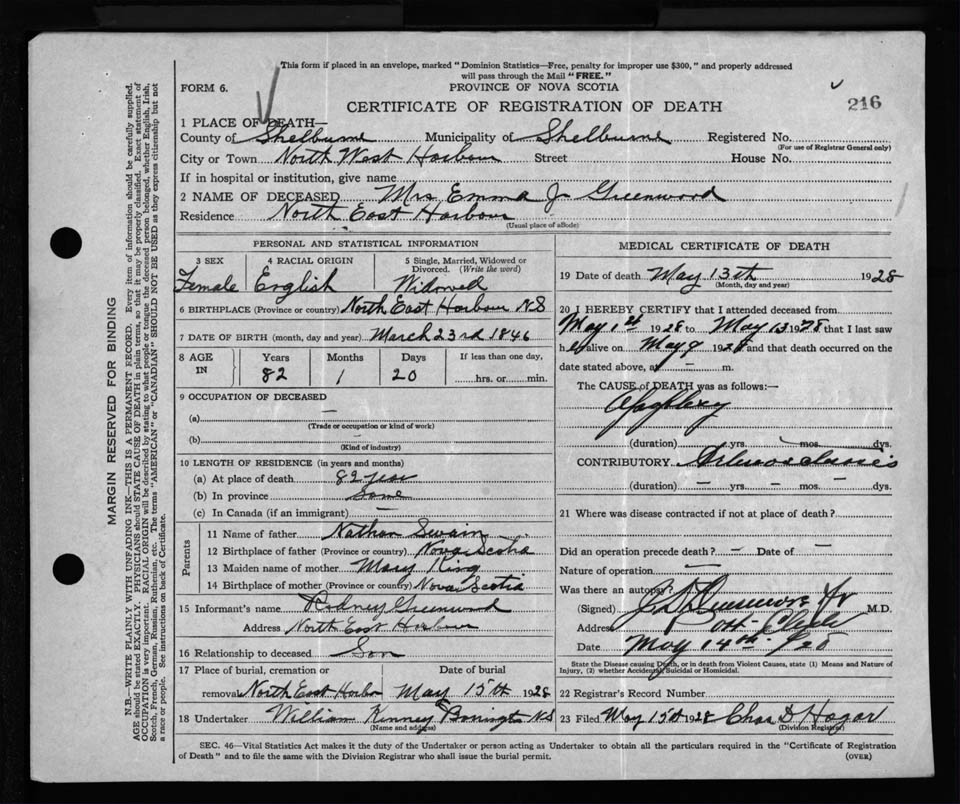 This form if placed in an envelope, marked "Dominion Statistics—Free, penalty for improper use $300," and properly addressed
will pass through the Mail "FREE."
FORM 6.
PROVINCE OF NOVA SCOTIA
CERTIFICATE OF REGISTRATION OF DEATH
216
1 PLACE OF DEATH—
County of Shelburne Municipality of Shelburne Registered No.
(For use of Registrar General only)
City or Town North West Harbour Street House No.
If in hospital or institution, give name
2 NAME OF DECEASED Mrs Emma J Greenwood
Residence North East Harbour
(Usual place of abode)
PERSONAL AND STATISTICAL INFORMATION
3 SEX 4 RACIAL ORIGIN 5 Single, Married, Widowed or Divorced. (Write the word)
Female English Widowed
6 BIRTHPLACE (Province or country) North East Harbour NS
7 DATE OF BIRTH (month, day and year) March 23rd 1846
8 AGE IN Years Months Days If less than one day,
82 1 20 hrs. or min.
9 OCCUPATION OF DECEASED
(a) —
(Trade or occupation or kind of work)
(b) —
(Kind of industry)
10 LENGTH OF RESIDENCE (in years and months)
(a) At place of death 82 year
(b) In province Same
(c) In Canada (if an immigrant) —
Parents
11 Name of father Nathan Swain
12 Birthplace of father (Province or country) Nova Scotia
13 Maiden name of mother Mary King
14 Birthplace of mother (Province or country) Nova Scotia
15 Informant's name Rodney Greenwood
Address North East Harbour
16 Relationship to deceased Son
17 Place of burial, cremation or Date of burial
removal North East Harbor May 15th 1928
18 Undertaker William Kinney NS
(Name and address)
MEDICAL CERTIFICATE OF DEATH
19 Date of death May 13th 1928
(Month, day and year)
20 I HEREBY CERTIFY that I attended deceased from
May 1st 1928 to May 13 1928 that I last saw
h er alive on May 9 1928 and that death occurred on the
date stated above, at — m.
The CAUSE of DEATH was as follows:—
Apoplexy
(duration) yrs. mos. dys.
CONTRIBUTORY
(duration) — yrs. — mos. — dys.
21 Where was disease contracted if not at place of death?
Did an operation precede death? — Date of —
Nature of operation —
Was there an autopsy?
(Signed) Jr M.D.
Address
Date May 14th /28
State the Disease causing Death, or in death from Violent Causes, state (1) Means and Nature of
Injury, (2) whether Accidental, Suicidal or Homicidal.
22 Registrar's Record Number
23 Filed May 15th 1928 Chas D Hagar
(Division Registrar)
SEC. 46—Vital Statistics Act makes it the duty of the Undertaker or person acting as Undertaker to obtain all the particulars required in the "Certificate of Registration
of Death" and to file the same with the Division Registrar who shall issue the burial permit.
(OVER)
MARGIN RESERVED FOR BINDING
N.B.—WRITE PLAINLY WITH UNFADING INK—THIS IS A PERMANENT RECORD. Every item of information should be carefully supplied.
AGE should be stated EXACTLY. PHYSICIANS should STATE CAUSE OF DEATH in plain terms, so that it may be properly classified. Exact statement of
OCCUPATION is very important. RACIAL ORIGIN will be described by stating to what people or tongue the deceased person belonged, whether English, Irish,
Scotch, French, German, Russian, Ruthenian, etc. The terms "AMERICAN" or "CANADIAN" SHOULD NOT BE USED as they express citizenship but not
a race or people. See instructions on back of Certificate.